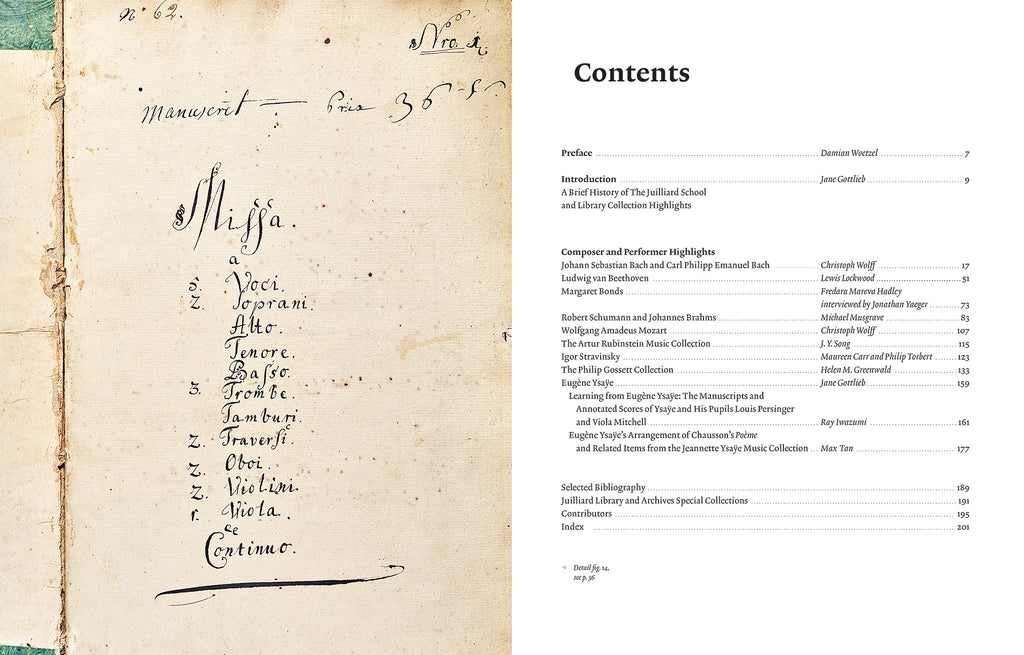 nº 62.
Nro. 1.
Manuscrit — 36
Missa.
a
5. Voci.
2. Soprani.
Alto.
Tenore.
Basso.
3. Trombe.
Tamburi.
2. Traversi.
2. Oboi.
2. Violini.
1. Viola.
e
Continuo.
Contents
Preface Damian Woetzel 7
Introduction Jane Gottlieb 9
A Brief History of The Juilliard School
and Library Collection Highlights
Composer and Performer Highlights
Johann Sebastian Bach and Carl Philipp Emanuel Bach Christoph Wolff 17
Ludwig van Beethoven Lewis Lockwood 51
Margaret Bonds Fredara Mareva Hadley
interviewed by Jonathan Yaeger 73
Robert Schumann and Johannes Brahms Michael Musgrave 83
Wolfgang Amadeus Mozart Christoph Wolff 107
The Artur Rubinstein Music Collection J. Y. Song 115
Igor Stravinsky Maureen Carr and Philip Torbert 123
The Philip Gossett Collection Helen M. Greenwald 133
Eugène Ysaÿe Jane Gottlieb 159
Learning from Eugène Ysaÿe: The Manuscripts and
Annotated Scores of Ysaÿe and His Pupils Louis Persinger
and Viola Mitchell Ray Iwazumi 161
Eugène Ysaÿe's Arrangement of Chausson's Poème
and Related Items from the Jeannette Ysaÿe Music Collection Max Tan 177
Selected Bibliography 189
Juilliard Library and Archives Special Collections 191
Contributors 195
Index 201
Detail fig. 14,
see p. 36